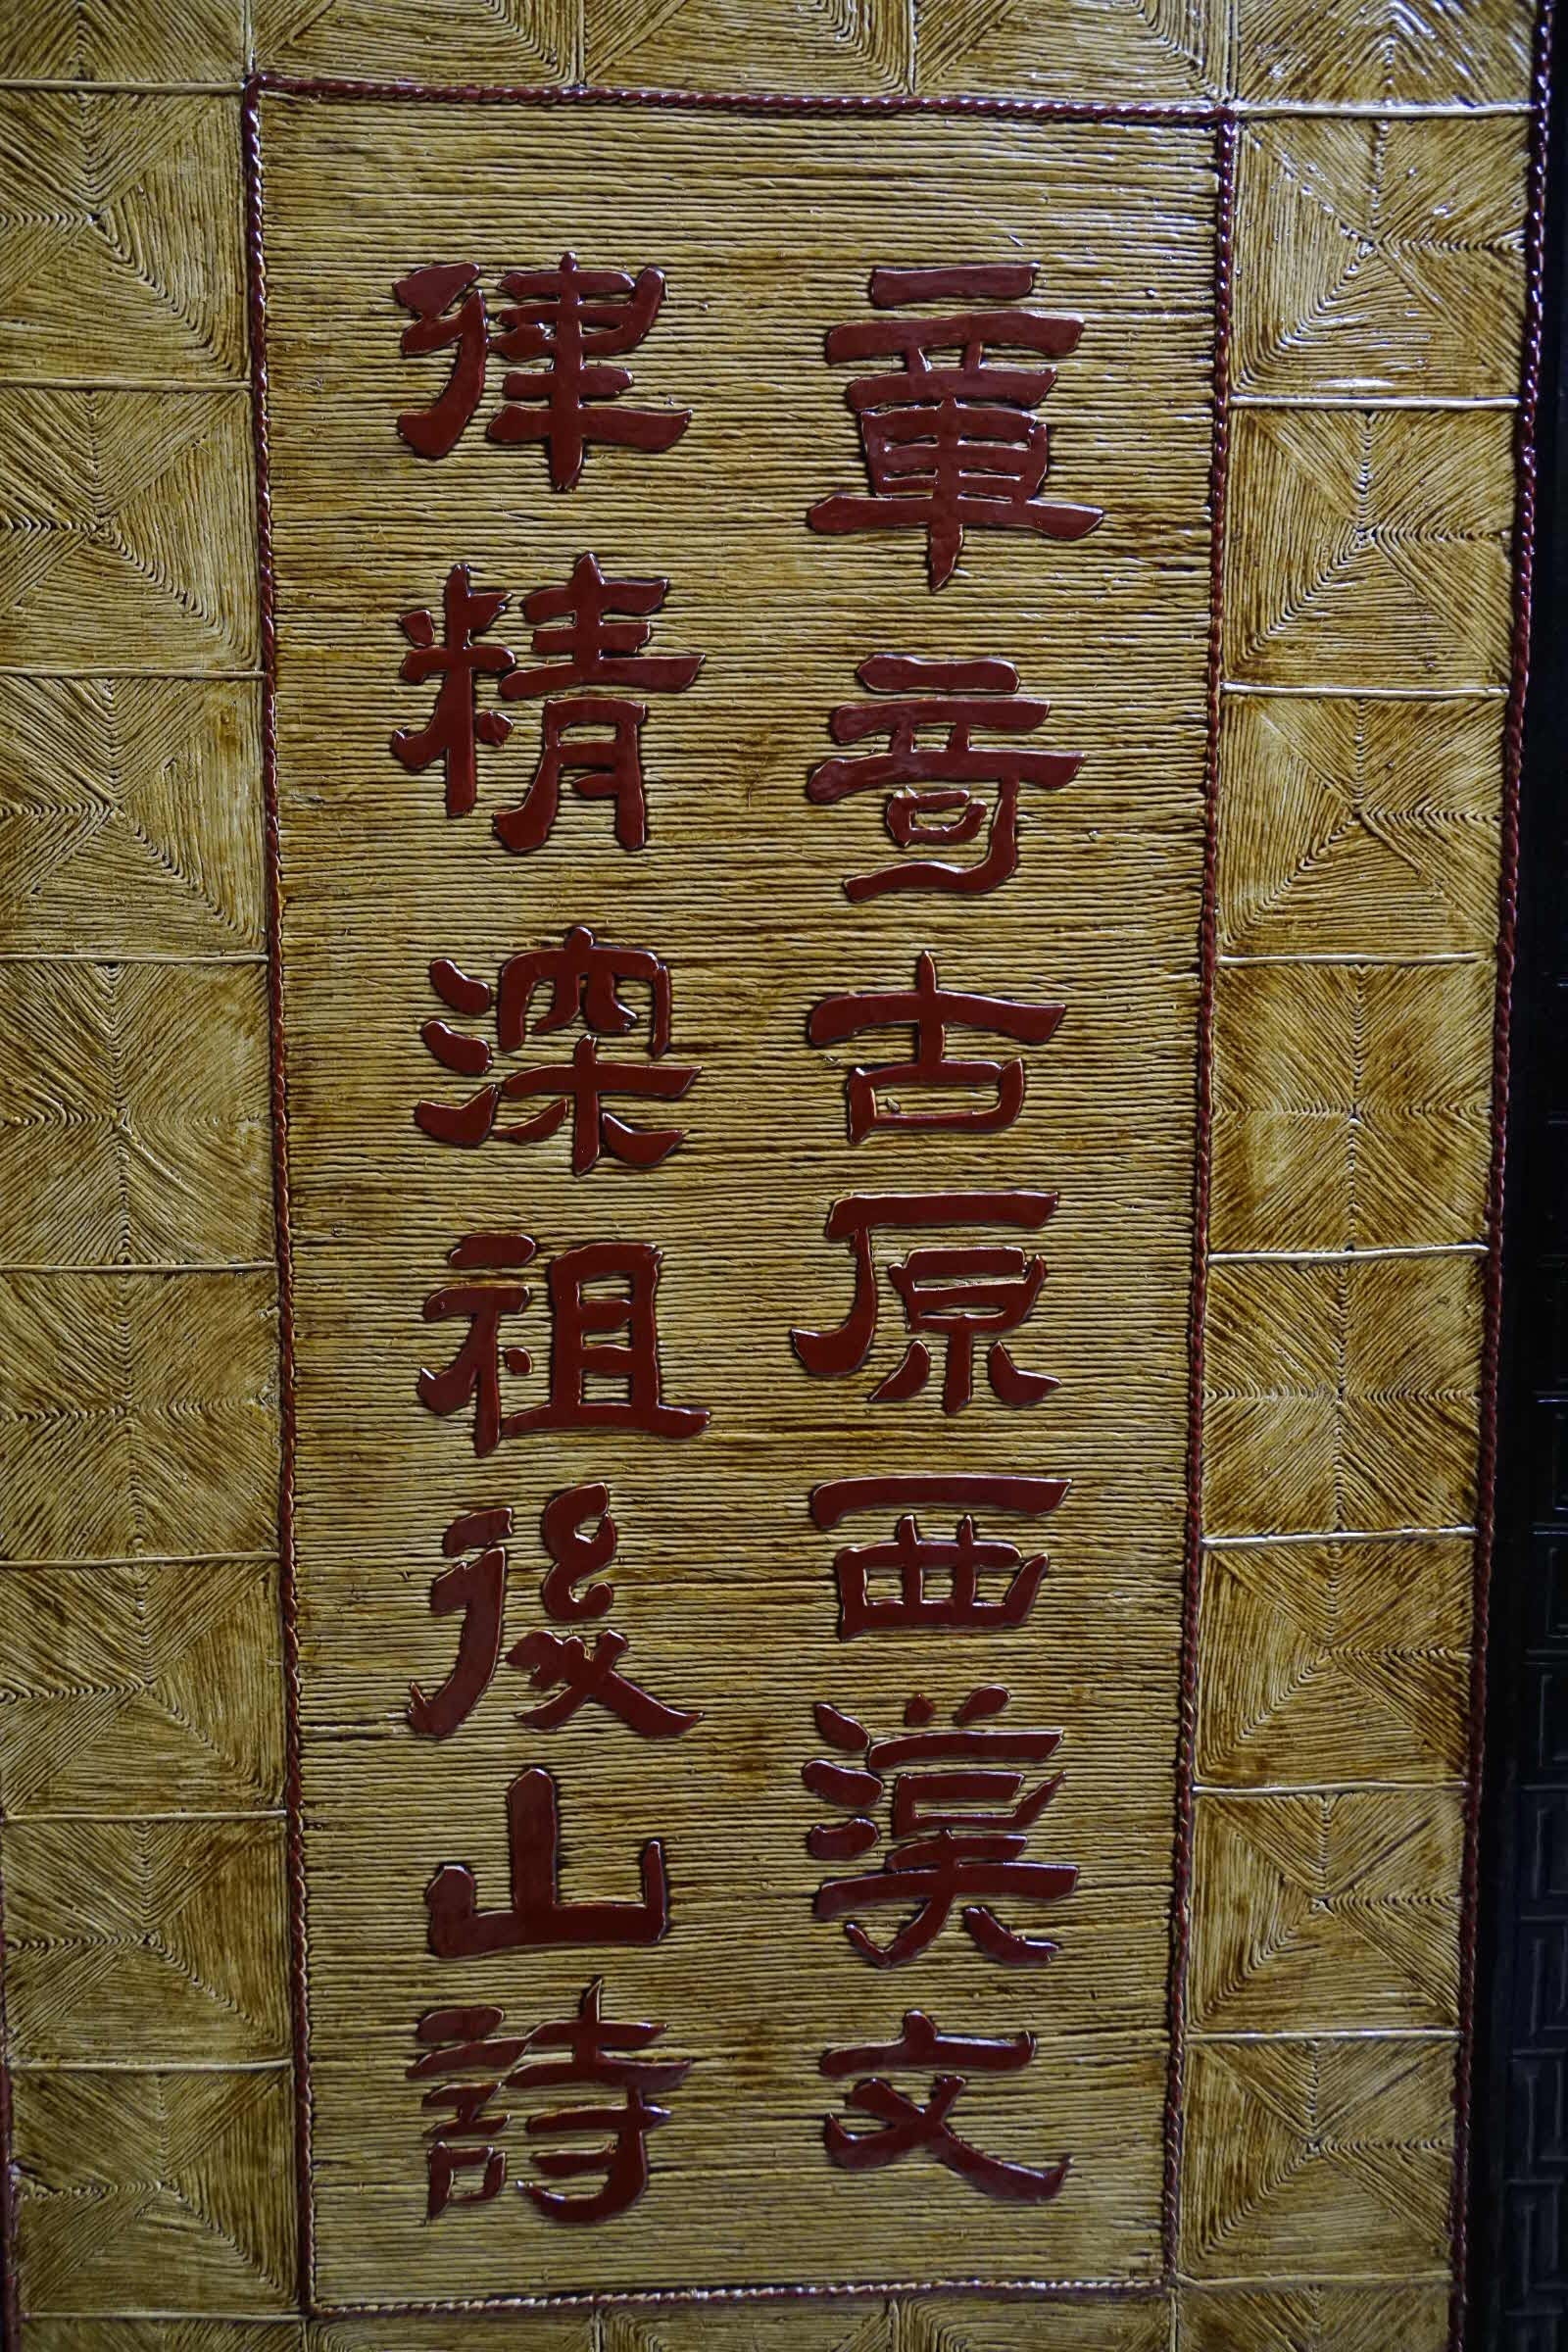 章竒古原西漢文
律精深祖後山詩